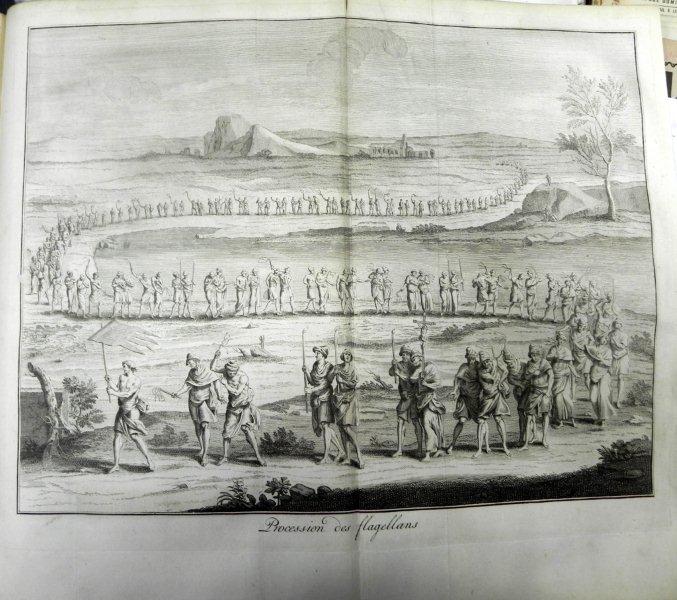 Procession des flagellans